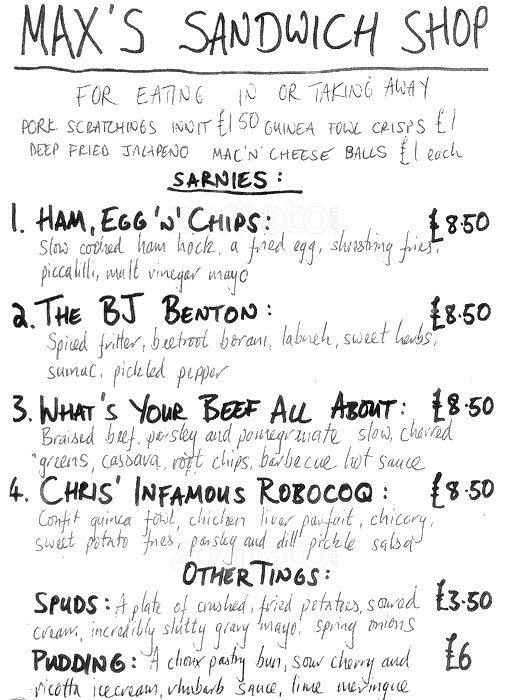 MAX'S SANDWICH SHOP
FOR EATING IN OR TAKING AWAY
PORK SCRATCHINGS INNIT £1.50 GUINEA FOWL CRISPS £1
DEEP FRIED JALAPENO MAC'N'CHEESE BALLS £1 each
SARNIES:
1. HAM, EGG 'N' CHIPS: £8.50
Slow cooked ham hock, a fried egg, shoestring fries,
piccalilli, malt vinegar mayo
2. THE BJ BENTON: £8.50
Spiced fritter, beetroot borani, labneh, sweet herbs,
sumac, pickled pepper
3. WHAT'S YOUR BEEF ALL ABOUT: £8.50
Braised beef, parsley and pomegranate slow, charred
greens, cassava, root chips, barbecue hot sauce
4. CHRIS' INFAMOUS ROBOCOQ: £8.50
Confit guinea fowl, chicken liver parfait, chicory,
sweet potato fries, parsley and dill pickle salsa
OTHER TINGS:
SPUDS: A plate of crushed, fried potatoes, soured £3.50
cream, incredibly slutty gravy mayo, spring onions
PUDDING: A choux pastry bun, sour cherry and £6
ricotta icecream, rhubarb sauce, lime meringue